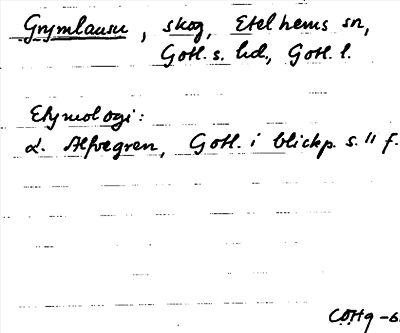 Grymlausu, skog, Etelhems sn,
Gotl. s. hd, Gotl. l.
Etymologi:
L. Alfvegren, Gotl. i blickp. s. 11 f.
COHg -6